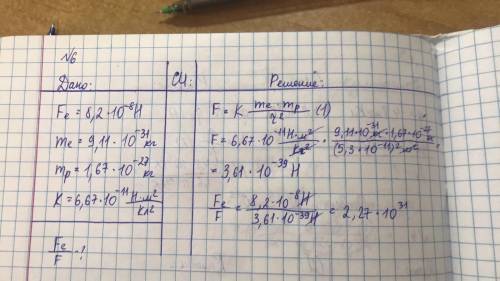 №6
Дано:
СИ:
Решение:
Fe = 8,2·10⁻⁸ Н
me = 9,11·10⁻³¹ кг
mp = 1,67·10⁻²⁷ кг
K = 6,67·10⁻¹¹ Н·м²/Кл²
Fe/F - ?
F = K me·mp/r² (1)
F = 6,67·10⁻¹¹ Н·м²/кг² · 9,11·10⁻³¹ кг·1,67·10⁻²⁷ кг/(5,3·10⁻¹¹)² м² =
= 3,61·10⁻³⁹ Н
Fe/F = 8,2·10⁻⁸Н/3,61·10⁻³⁹Н = 2,27·10³¹